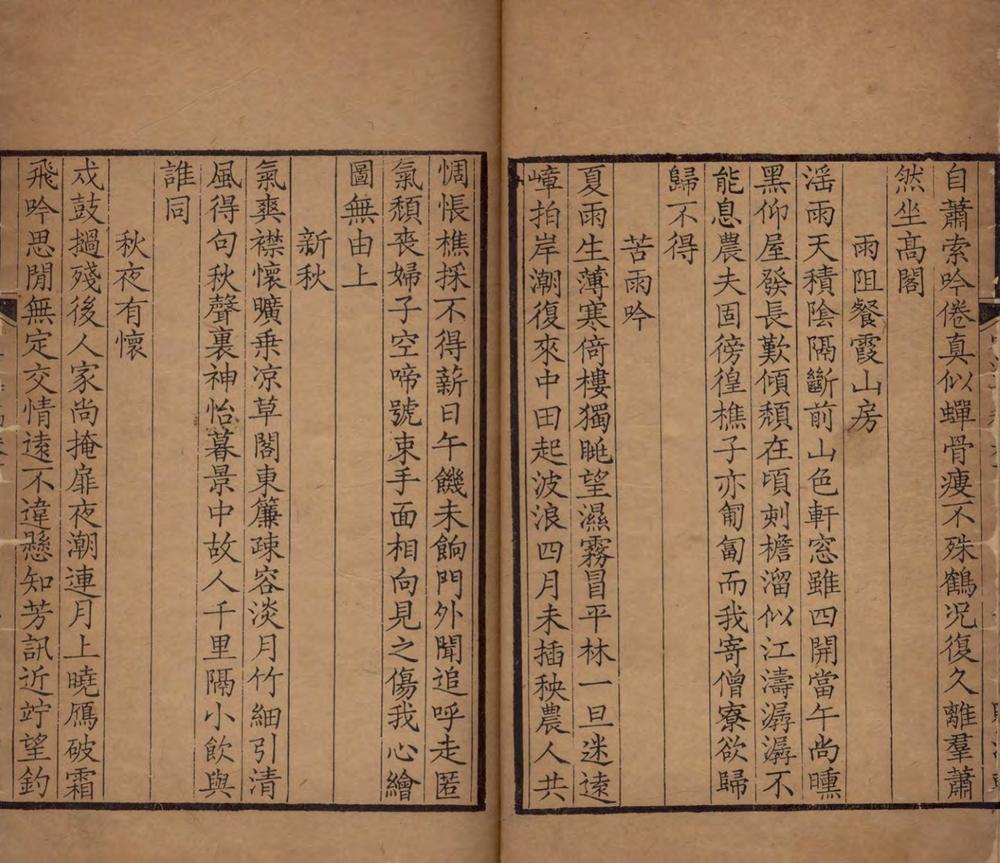 自蕭索吟倦真似蟬骨瘦不殊鶴况復久離羣蕭
然坐高閣
雨阻餐霞山房
淫雨天積陰隔斷前山色軒窓雖四開當午尚曛
黑仰屋發長歎傾頹在頃刻檐溜似江濤潺潺不
能息農夫固徬徨樵子亦匍匐而我寄僧寮欲歸
歸不得
苦雨吟
夏雨生薄寒倚樓獨眺望濕霧冒平林一旦迷遠
嶂拍岸潮復來中田起波浪四月未插秧農人共
惆悵樵採不得薪日午饑未餉門外聞追呼走匿
氣頹喪婦子空啼號束手面相向見之傷我心繪
圖無由上
新秋
氣爽襟懷曠乗凉草閣東簾疎容淡月竹細引清
風得句秋聲裏神怡暮景中故人千里隔小飲與
誰同
秋夜有懷
戍鼓撾殘後人家尚掩扉夜潮連月上曉鴈破霜
飛吟思閒無定交情遠不違懸知芳訊近竚望釣